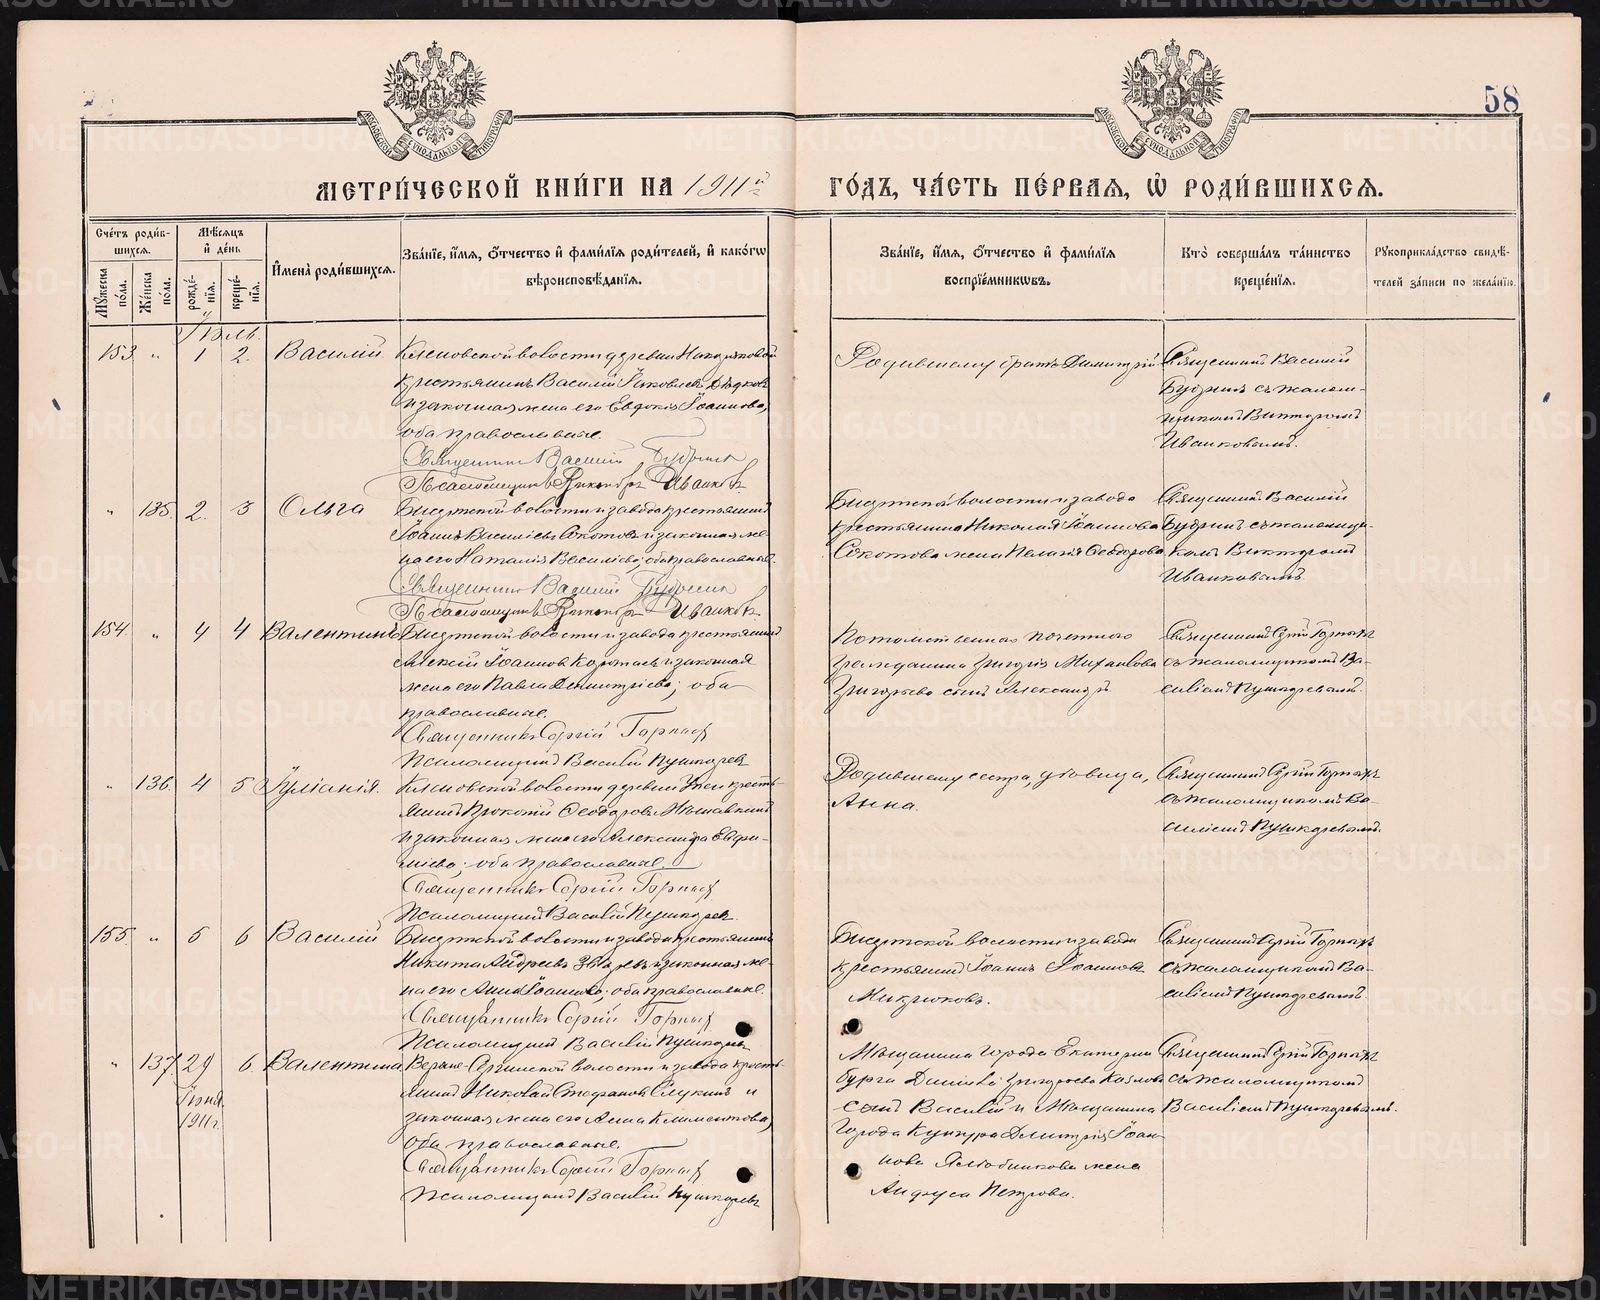 58
МЕТРИ́ЧЕСКОЙ КНИ́ГИ НА 1911й ГО́ДЪ, ЧА́СТЬ ПЕ́РВАЯ, Ѿ РОДИ́ВШИХСЯ.
Сче́тъ роди́в-
шихся.
Мꙋжеска по́ла.
Же́нска по́ла.
Мѣ́сяцъ
и де́нь
рожде́-
нїя.
креще́-
нїя.
И҆мена̀ роди́вшихся.
Зва́нїе, и҆́мя, ѻ҆́тчество и҆ фами́лїя роди́телей, и҆ како́гѡ
вѣроисповѣ́данїя.
Зва́нїе, и҆́мя, ѻ҆́тчество и҆ фами́лїя
воспрїе́мникѡвъ.
Кто̀ соверша́лъ та́инство
креще́нїя.
Рꙋкоприкла́дство свидѣ́-
телей за́писи по жела́нїю.
Іюль.
153. " 1 2. Василій
Кленовской волости деревни
крестьянинъ Василій Іаковлевъ Дѣдковъ
и законная жена его Евдокія Іоаннова,
оба православные.
Священникъ Василій Будринъ
Псаломщикъ Викторъ Иванковъ
Родившему братъ Димитрій
Священникъ Василій
Будринъ съ псалом-
щикомъ Викторомъ
Иванковымъ.
" 135. 2. 3 Ольга
Бисертской волости и завода крестьянинъ
Іоаннъ Васильевъ Сокотовъ и законная же-
на его Наталія Васильева; оба православные.
Священникъ Василій Будринъ
Псаломщикъ Викторъ Иванковъ
Бисертской волости и завода
крестьянина Николая Іоаннова
Сокотова жена Пелагія Ѳеодорова
Священникъ Василій
Будринъ съ псаломщи-
комъ Викторомъ
Иванковымъ
154. " 4 4 Валентинъ
Бисертской волости и завода крестьянинъ
Алексій Іоанновъ и законная
жена его Павла Димитріева; оба
православные.
Священникъ Сергій
Псаломщикъ Василій Пушкаревъ
Потомственнаго почетнаго
гражданина Григорія Михайлова
Григорьева сынъ Александръ
Священникъ Сергій
съ псаломщикомъ Ва-
силіемъ Пушкаревымъ.
" 136. 4 5 Іуліанія.
Кленовской волости деревни кресть-
янинъ Прокопій Ѳеодоровъ
и законная жена его Александра Евфи-
міева; оба православные.
Священникъ Сергій
Псаломщикъ Василій Пушкаревъ.
Родившему сестра, дѣвица,
Анна.
Священникъ Сергій
съ псаломщикомъ Ва-
силіемъ Пушкаревымъ.
155. " 5 6 Василій
Бисертской волости и завода крестьянинъ
Никита Андреевъ Звѣревъ и законная же-
на его Анна Іоаннова; оба православные.
Священникъ Сергій
Псаломщикъ Василій Пушкаревъ
Бисертской волости и завода
крестьянинъ Іоаннъ Іоанновъ
Микрюковъ.
Священникъ Сергій
съ псаломщикомъ Ва-
силіемъ Пушкаревымъ
" 137 29 6. Валентина
Іюня
1911г.
Верхне-Сергинской волости и завода кресть-
янинъ Николай Стефановъ и
законная жена его Анна Климентова,
оба православные.
Священникъ Сергій
Псаломщикъ Василій Пушкаревъ
Мѣщанина города Екатерин-
бурга Даніила Григорьева Козлова
сынъ Василій и мѣщанина
города Кунгура Димитрія Іоан-
нова жена
Петрова.
Священникъ Сергій
съ псаломщикомъ
Василіемъ Пушкаревымъ.